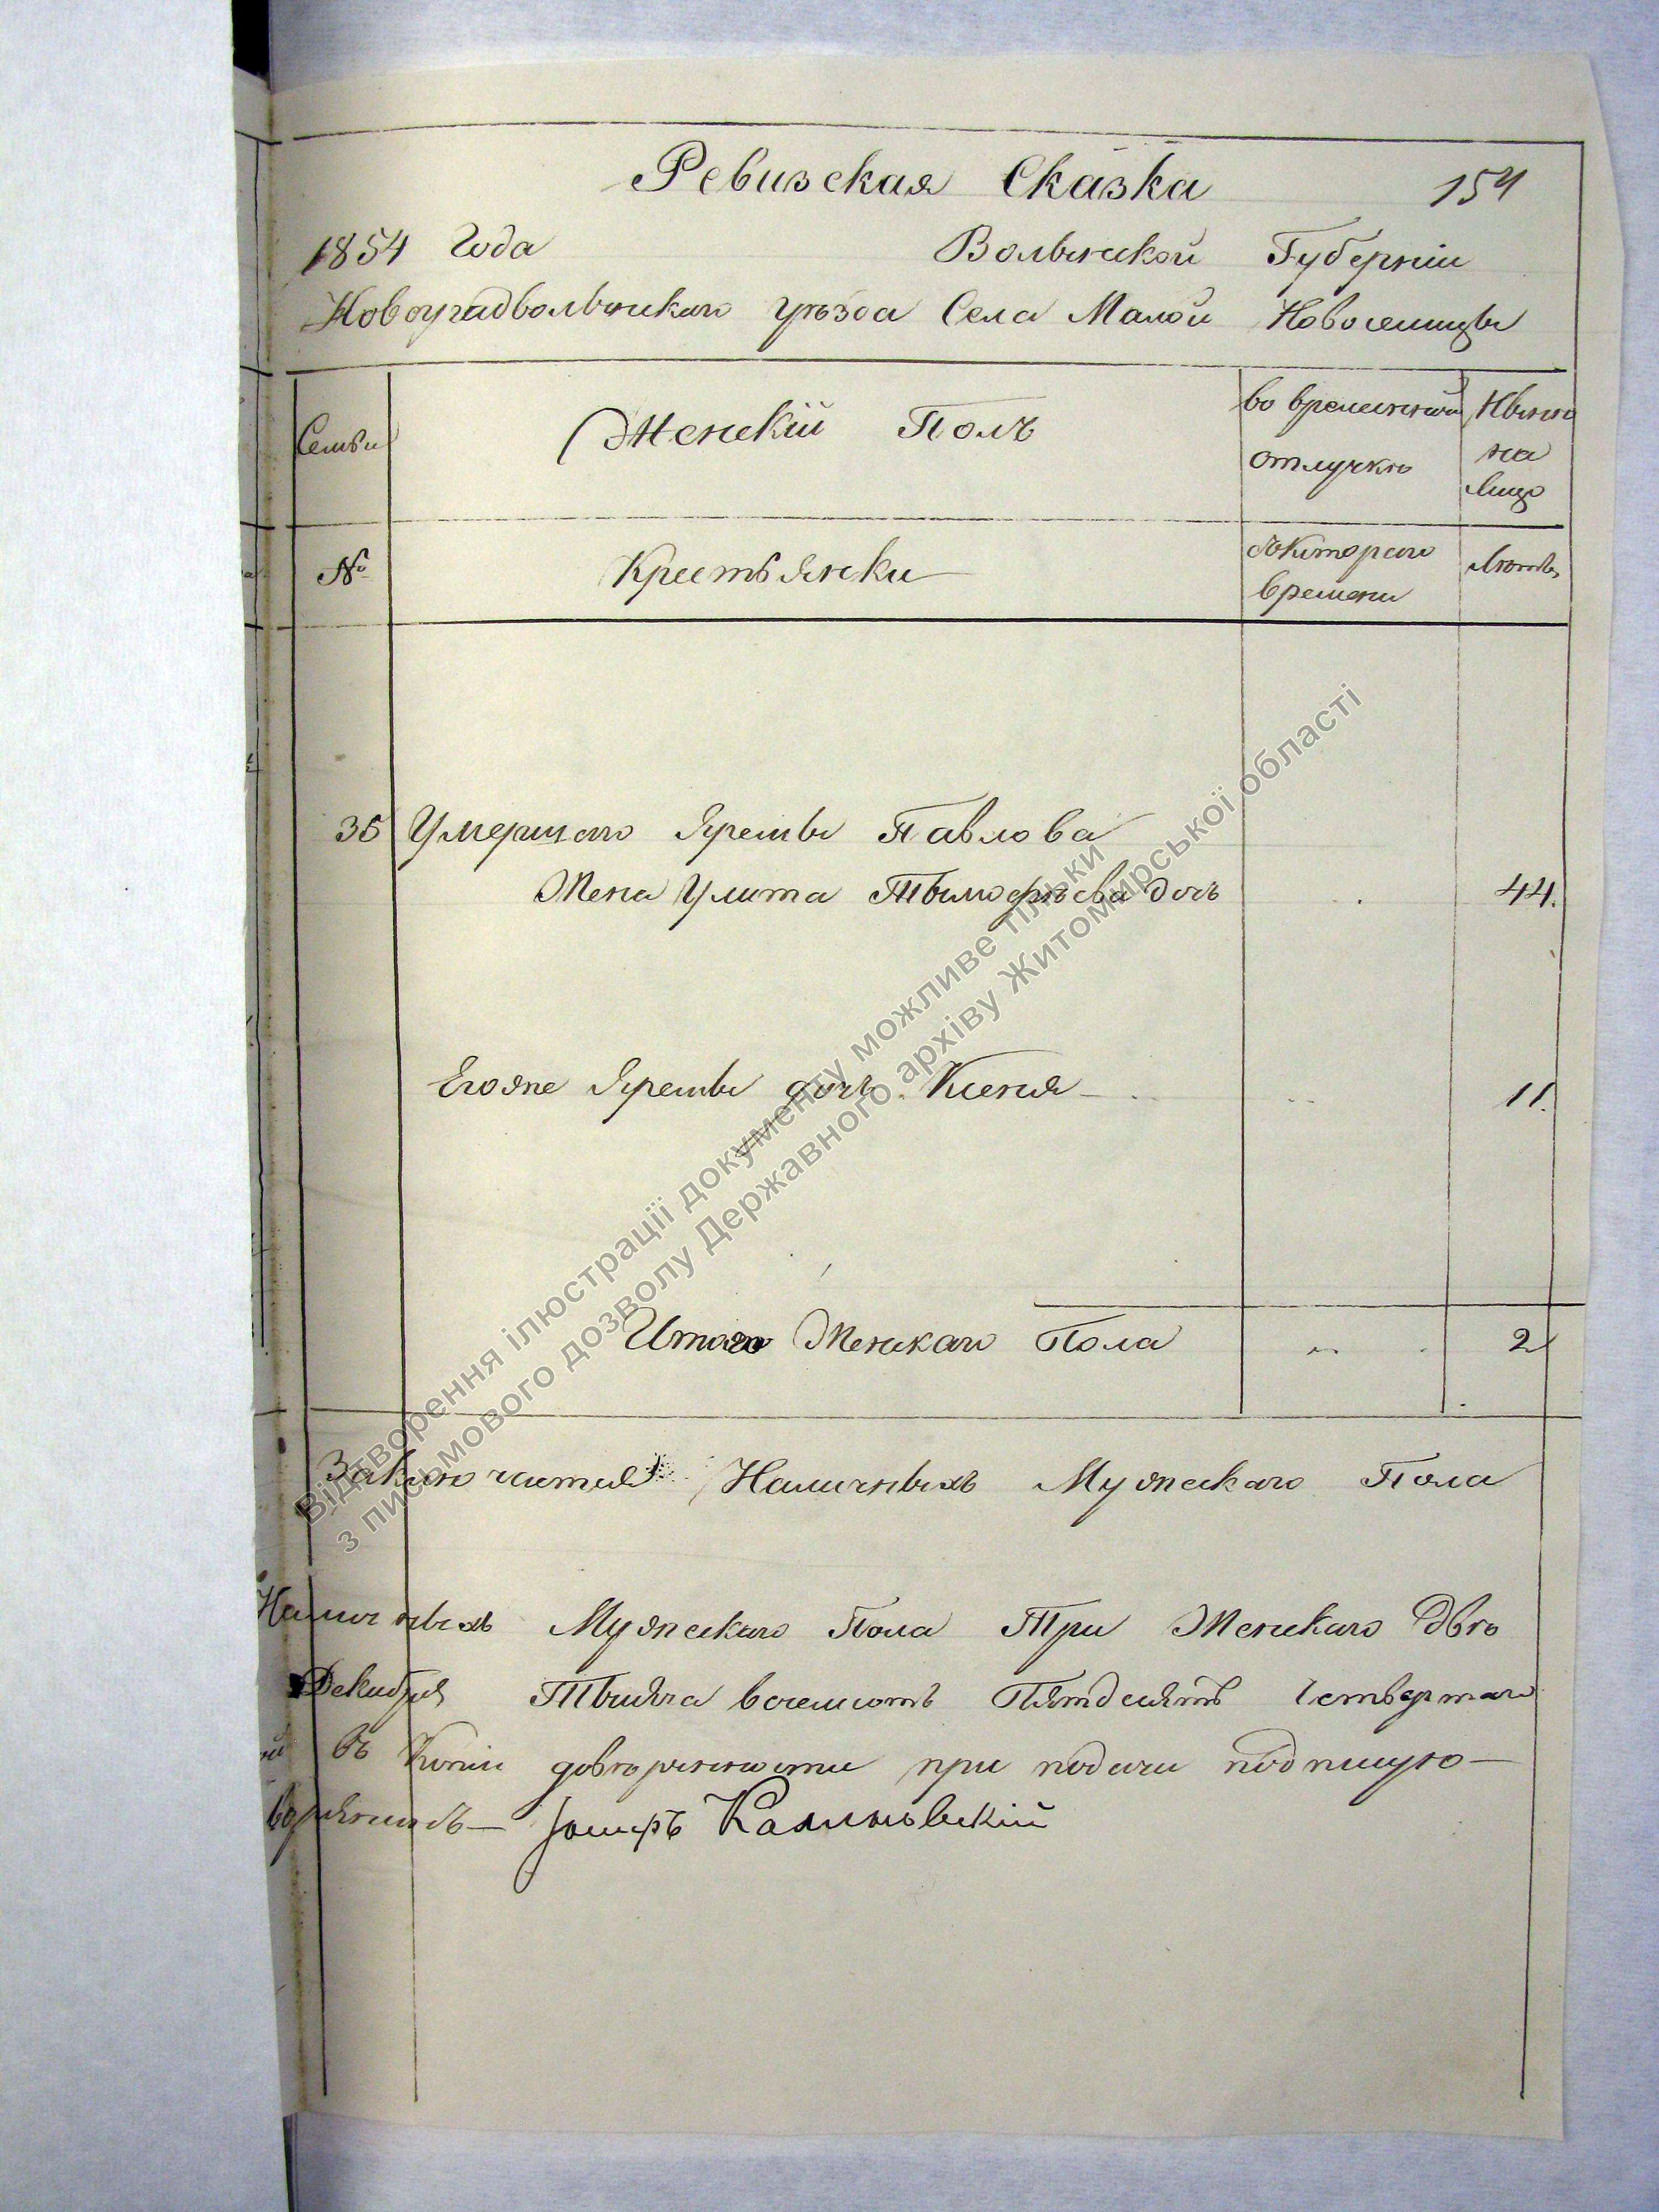 Ревизская Сказка 154
1854 Года Волынской Губерніи
Новоградволынскаго уѣзда Села Малой Новоселицы
Семьи
Женскій Полъ
во временной
отлучкѣ
Нынѣ
на
лицо
№
Крестьянки
съ котораго
времени
Лѣта
35 Умершаго Яремы Павлова
Жена Улита Тымофѣева дочь 44.
Егоже Яремы дочь Ксенія 11.
Итого Женскаго Пола 2
Наличныхъ Мужескаго Пола
Наличныхъ Мужескаго Пола Три Женскаго Двѣ
Декабря Тысяча восемсотъ Пятдесятъ Четвертаго
въ Копіи довѣренности при подачи подпишую
Іосифъ Калиновскій
Відтворення ілюстрації документу можливе тільки
з письмового дозволу Державного архіву Житомирської області